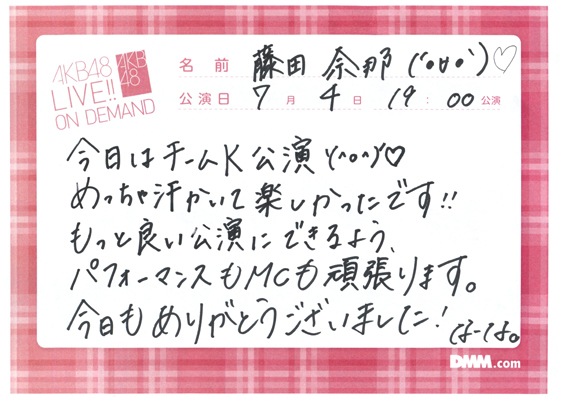 AKB48
LIVE!!
ON DEMAND
AKB
48
名前 藤田 奈那 (´•∀•`)♡
公演日 7月 4日 19:00公演
今日はチームK公演ヾ(^o^)ノ♡
めっちゃ汗かいて楽しかったです!!
もっと良い公演にできるよう、
パフォーマンスもMCも頑張ります。
今日もありがとうございました!
なーな。
DMM.com